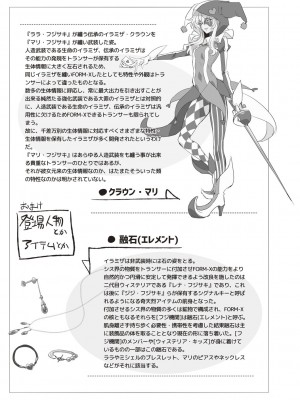 『ララ・フジサキ』が纏う伝承、クラウンを
『マリ・フジサキ』が纏い武装した姿。
人造武装である生命のイラミザ、伝承のイラミザは
その能力の発現をトランサーが保有する
生体情報に大きく左右されるため、
同じイラミザを纏いFORM-Xしたとしても特性や外観はトラン
サーによって違ったものとなる。
数多の生体情報に対応し、常に最大出力を引き出すことが
出来る純然たる強化武装である大罪のイラミザとは対照的
に、人造武装である生命のイラミザ、伝承のイラミザは汎
用性に欠けるためFORM-Xできるトランサーも限られてしま
う。
故に、千差万別の生体情報に対応すべくさまざまな特性・
生体情報を保有したイラミザが多く開発されたというわけ
だ。
『マリ・フジサキ』はあらゆる人造武装をも纏う事が出来
る貴重なトランサーのひとりではあるが、
それが彼女元来の生体情報なのか、はたまたそういった類
の特性なのかは明かされていない。
●クラウン・マリ
おまけ
登場人物
とか
アイテムとか
● 融石(エレメント)
イラミザは非武装時には石の姿をとる。
シス界の物質をトランサーに付加させFORM-Xの能力をより
自然的かつ円滑に安定して発揮できるよう改良を施したのは
二代目ウィステリアである『レナ・フジサキ』であり、これ
は後に『ジジ・フジサキ』らが保有するシグナルキーと呼ば
れるようになる奇天烈アイテムの前身となった。
付加させるシス界の物質の多くは鉱物で構成され、FORM-X
の核ともなるそれらを【フジ機関】は融石(エレメント)と呼ぶ。
肌身離さず持ち歩く必要性・携帯性を考慮した結果融石は主
に装飾品の体を取ることとなり現在の形に落ち着いた。【フ
ジ機関】のメンバーや【ウィステリア・キッズ】が身に着けて
いるものの一部はこの融石である。
ララやミシェルのブレスレット、マリのピアスやネックレス
などがそれに該当する。